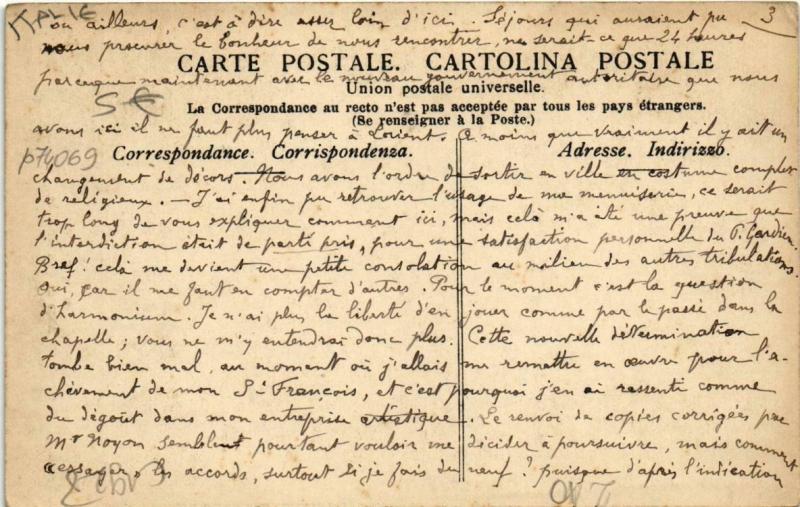 ITALIE
3
ou ailleurs, c'est à dire assez loin d'ici. Séjours qui auraient pu
nous procurer le bonheur de nous rencontrer, ne serait-ce que 24 heures
CARTE POSTALE. CARTOLINA POSTALE
parceque maintenant avec le nouveau gouvernement autoritaire que nous
Union postale universelle.
5 €
La Correspondance au recto n'est pas acceptée par tous les pays étrangers.
(Se renseigner à la Poste.)
avons ici il ne faut plus penser à Lorient. A moins que vraiment il y ait un
p74069
Correspondance. Corrispondenza.
Adresse. Indirizzo.
changement de décors. Nous avons l'ordre de sortir en ville en costume complet
de religieux. — J'ai enfin pu retrouver l'usage de ma menuiserie, ce serait
trop long de vous expliquer comment ici, mais celà m'a été une preuve que
l'interdiction était de parti pris, pour une satisfaction personnelle du P. Gardien.
Bref! celà me devient une petite consolation au milieu des autres tribulations.
oui, car il me faut en compter d'autres. Pour le moment c'est la question
d'harmonium. Je n'ai plus la liberté d'en jouer comme par le passé dans la
chapelle; vous ne m'y entendrai donc plus. Cette nouvelle détermination
tombe bien mal, au moment où j'allais me remettre en œuvre pour l'a-
chèvement de mon St François, et c'est pourquoi j'en ai ressenti comme
du dégoût dans mon entreprise artistique. Le renvoi de copies corrigées par
Mr Noyon semblent pourtant vouloir me décider à poursuivre, mais comment
les accords, surtout si je fais du neuf? puisque d'après l'indication